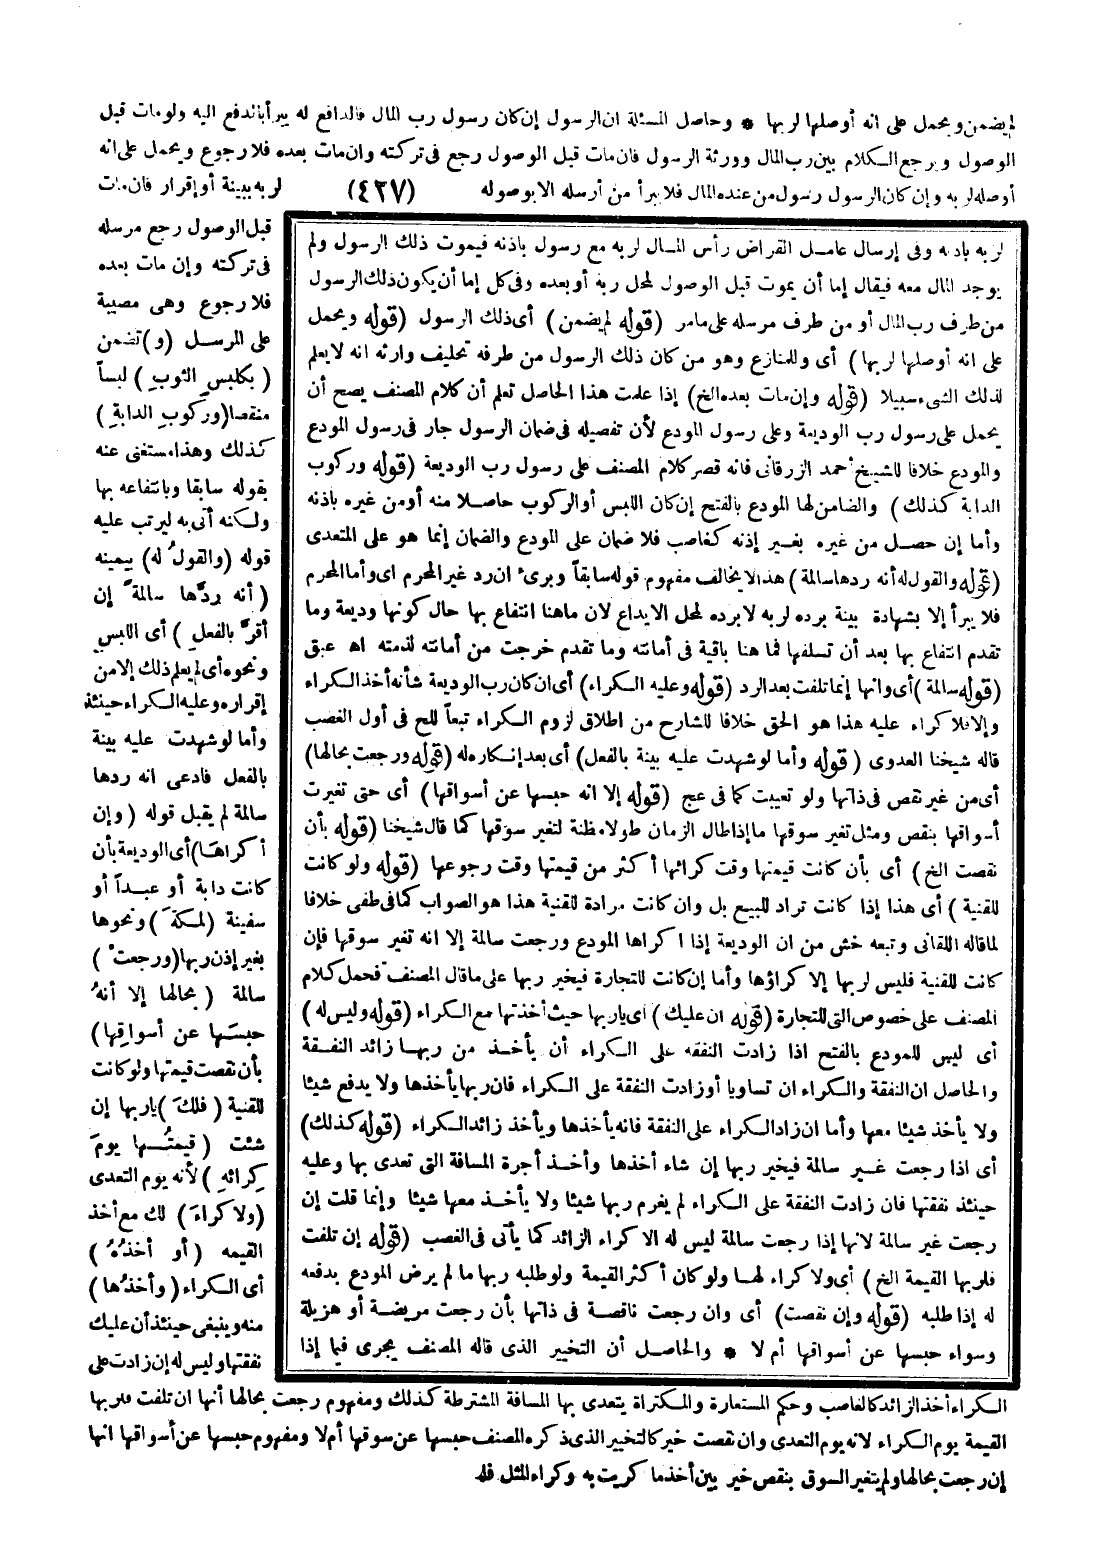 لم يضمن ويحمل على انه أوصلها لربها * وحاصل المسئلة ان الرسول إن كان رسول رب المال فالدافع له يبرأ بالدفع اليه ولومات قبل
الوصول ويرجع الكلام بين رب المال وورثة الرسول فان مات قبل الوصول رجع فى تركته وان مات بعده فلا رجوع ويحمل على انه
أوصله لربه وإن كان الرسول رسول من عنده المال فلا يبرأ من أرسله الا بوصوله (٤٢٧) لربه ببينة أو إقرار فان مات
قبل الوصول رجع مرسله
فى تركته وإن مات بعده
فلا رجوع وهى مصيبة
على المرسل (و) تضمن
(بكلبسِ الثوبِ) لبساً
منقصا (وركوبِ الدابةِ)
كذلك وهذا مستغنى عنه
بقوله سابقا وبانتفاعه بها
ولكنه أتى به ليرتب عليه
قوله (والقولُ له) بيمينه
(أنه ردَّها سالمةً إن
أقرَّ بالفعلِ) أى اللبس
ونحوه أى لم يعلم ذلك إلا من
إقراره وعليه الكراء حينئذ
وأما لو شهدت عليه بينة
بالفعل فادعى انه ردها
سالمة لم يقبل قوله (وإن
أكراهَا) أى الوديعة بأن
كانت دابة أو عبداً أو
سفينة (لمكةَ) ونحوها
بغير إذن ربها (ورجعتْ)
سالمة (بحالها إلا أنهُ
حبسَها عن أسواقها)
بأن نقصت قيمتها ولو كانت
للقنية (فلكَ) ياربها إن
شئت (قيمتُها يومَ
كِرائهِ) لأنه يوم التعدى
(ولا كراءَ) لك مع أخذ
القيمه (أو أخذُهُ)
أى الكراء (وأخذُها)
منه وينبغى حينئذ أن عليك
نفقتها وليس له إن زادت على
الكراء أخذ الزائد كالغاصب وحكم المستعارة والمكتراة يتعدى بها المسافة المشترطة كذلك ومفهوم رجعت بحالها أنها ان تلفت فلربها
القيمة يوم الكراء لانه يوم التعدى وان نقصت خير كالتخيير الذى ذكره المصنف حبسها عن سوقها أم لا ومفهوم حبسها عن أسواقها انها
إن رجعت بحالها ولم يتغير السوق بنقص خير بين أخذ ما كريت به وكراء المثل فله
لربه باذنه وفى إرسال عامل القراض رأس المال لربه مع رسول باذنه فيموت ذلك الرسول ولم
يوجد المال معه فيقال إما أن يموت قبل الوصول لمحل ربه أو بعده وفى كل إما أن يكون ذلك الرسول
من طرف رب المال أو من طرف مرسله على مامر (قوله لم يضمن) أى ذلك الرسول (قوله ويحمل
على انه أوصلها لربها) أى وللمنازع وهو من كان ذلك الرسول من طرفه تحليف وارثه انه لا يعلم
لذلك الشىء سبيلا (قوله وإن مات بعده الخ) إذا علمت هذا الحاصل تعلم أن كلام المصنف يصح أن
يحمل على رسول رب الوديعة وعلى رسول المودع لأن تفصيله فى ضمان الرسول جار فى رسول المودع
والمودع خلافا للشيخ أحمد الزرقانى فانه قصر كلام المصنف على رسول رب الوديعة (قوله وركوب
الدابة كذلك) والضامن لها المودع بالفتح إن كان اللبس أو الركوب حاصلا منه أو من غيره باذنه
وأما إن حصل من غيره بغير إذنه كغاصب فلا ضمان على المودع والضمان إنما هو على المتعدى
(قوله والقول له أنه ردها سالمة) هذا لا يخالف مفهوم قوله سابقاً وبرىء ان رد غير المحرم اى وأما المحرم
فلا يبرأ إلا بشهادة بينة برده لربه لا برده لمحل الايداع لان ماهنا انتفاع بها حال كونها وديعة وما
تقدم انتفاع بها بعد أن تسلفها فما هنا باقية فى أمانته وما تقدم خرجت من أمانته لذمته اه عبق
(قوله سالمة) أى وانها إنما تلفت بعد الرد (قوله وعليه الكراء) أى ان كان رب الوديعة شأنه أخذ الكراء
وإلا فلا كراء عليه هذا هو الحق خلافا للشارح من اطلاق لزوم الكراء تبعاً للح فى أول الغصب
قاله شيخنا العدوى (قوله وأما لو شهدت عليه بينة بالفعل) أى بعد إنكاره له (قوله ورجعت بحالها)
أى من غير نقص فى ذاتها ولو تعيبت كما فى عج (قوله إلا انه حبسها عن أسواقها) أى حتى تغيرت
أسواقها بنقص ومثل تغير سوقها ما إذا طال الزمان طولا مظنة لتغير سوقها كما قال شيخنا (قوله بأن
نقصت الخ) أى بأن كانت قيمتها وقت كرائها أكثر من قيمتها وقت رجوعها (قوله ولو كانت
للقنية) أى هذا إذا كانت تراد للبيع بل وان كانت مرادة للقنية هذا هو الصواب كما فى طفى خلافا
لما قاله اللقانى وتبعه خش من ان الوديعة إذا اكراها المودع ورجعت سالمة إلا انه تغير سوقها فإن
كانت للقنية فليس لربها إلا كراؤها وأما إن كانت للتجارة فيخير ربها على ما قال المصنف فحمل كلام
المصنف على خصوص التى للتجارة (قوله ان عليك) اى ياربها حيث أخذتها مع الكراء (قوله وليس له)
أى ليس للمودع بالفتح اذا زادت النفقه على الكراء أن يأخذ من ربها زائد النفقة
والحاصل ان النفقة والكراء ان تساويا أو زادت النفقة على الكراء فان ربها يأخذها ولا يدفع شيئا
ولا يأخذ شيئا معها وأما ان زاد الكراء على النفقة فانه يأخذها ويأخذ زائد الكراء (قوله كذلك)
أى اذا رجعت غير سالمة فيخير ربها إن شاء أخذها وأخذ أجرة المسافة التى تعدى بها وعليه
حينئذ نفقتها فان زادت النفقة على الكراء لم يغرم ربها شيئا ولا يأخذ معها شيئا وإنما قلت إن
رجعت غير سالمة لانها إذا رجعت سالمة ليس له الا كراء الزائد كما يأتى فى الغصب (قوله إن تلفت
فلربها القيمة الخ) أى ولا كراء لها ولو كان أكثر القيمة ولو طلبه ربها ما لم يرض المودع بدفعه
له إذا طلبه (قوله وإن نقصت) أى وان رجعت ناقصة فى ذاتها بأن رجعت مريضة أو هزيلة
وسواء حبسها عن أسواقها أم لا * والحاصل أن التخيير الذى قاله المصنف يجرى فيما إذا